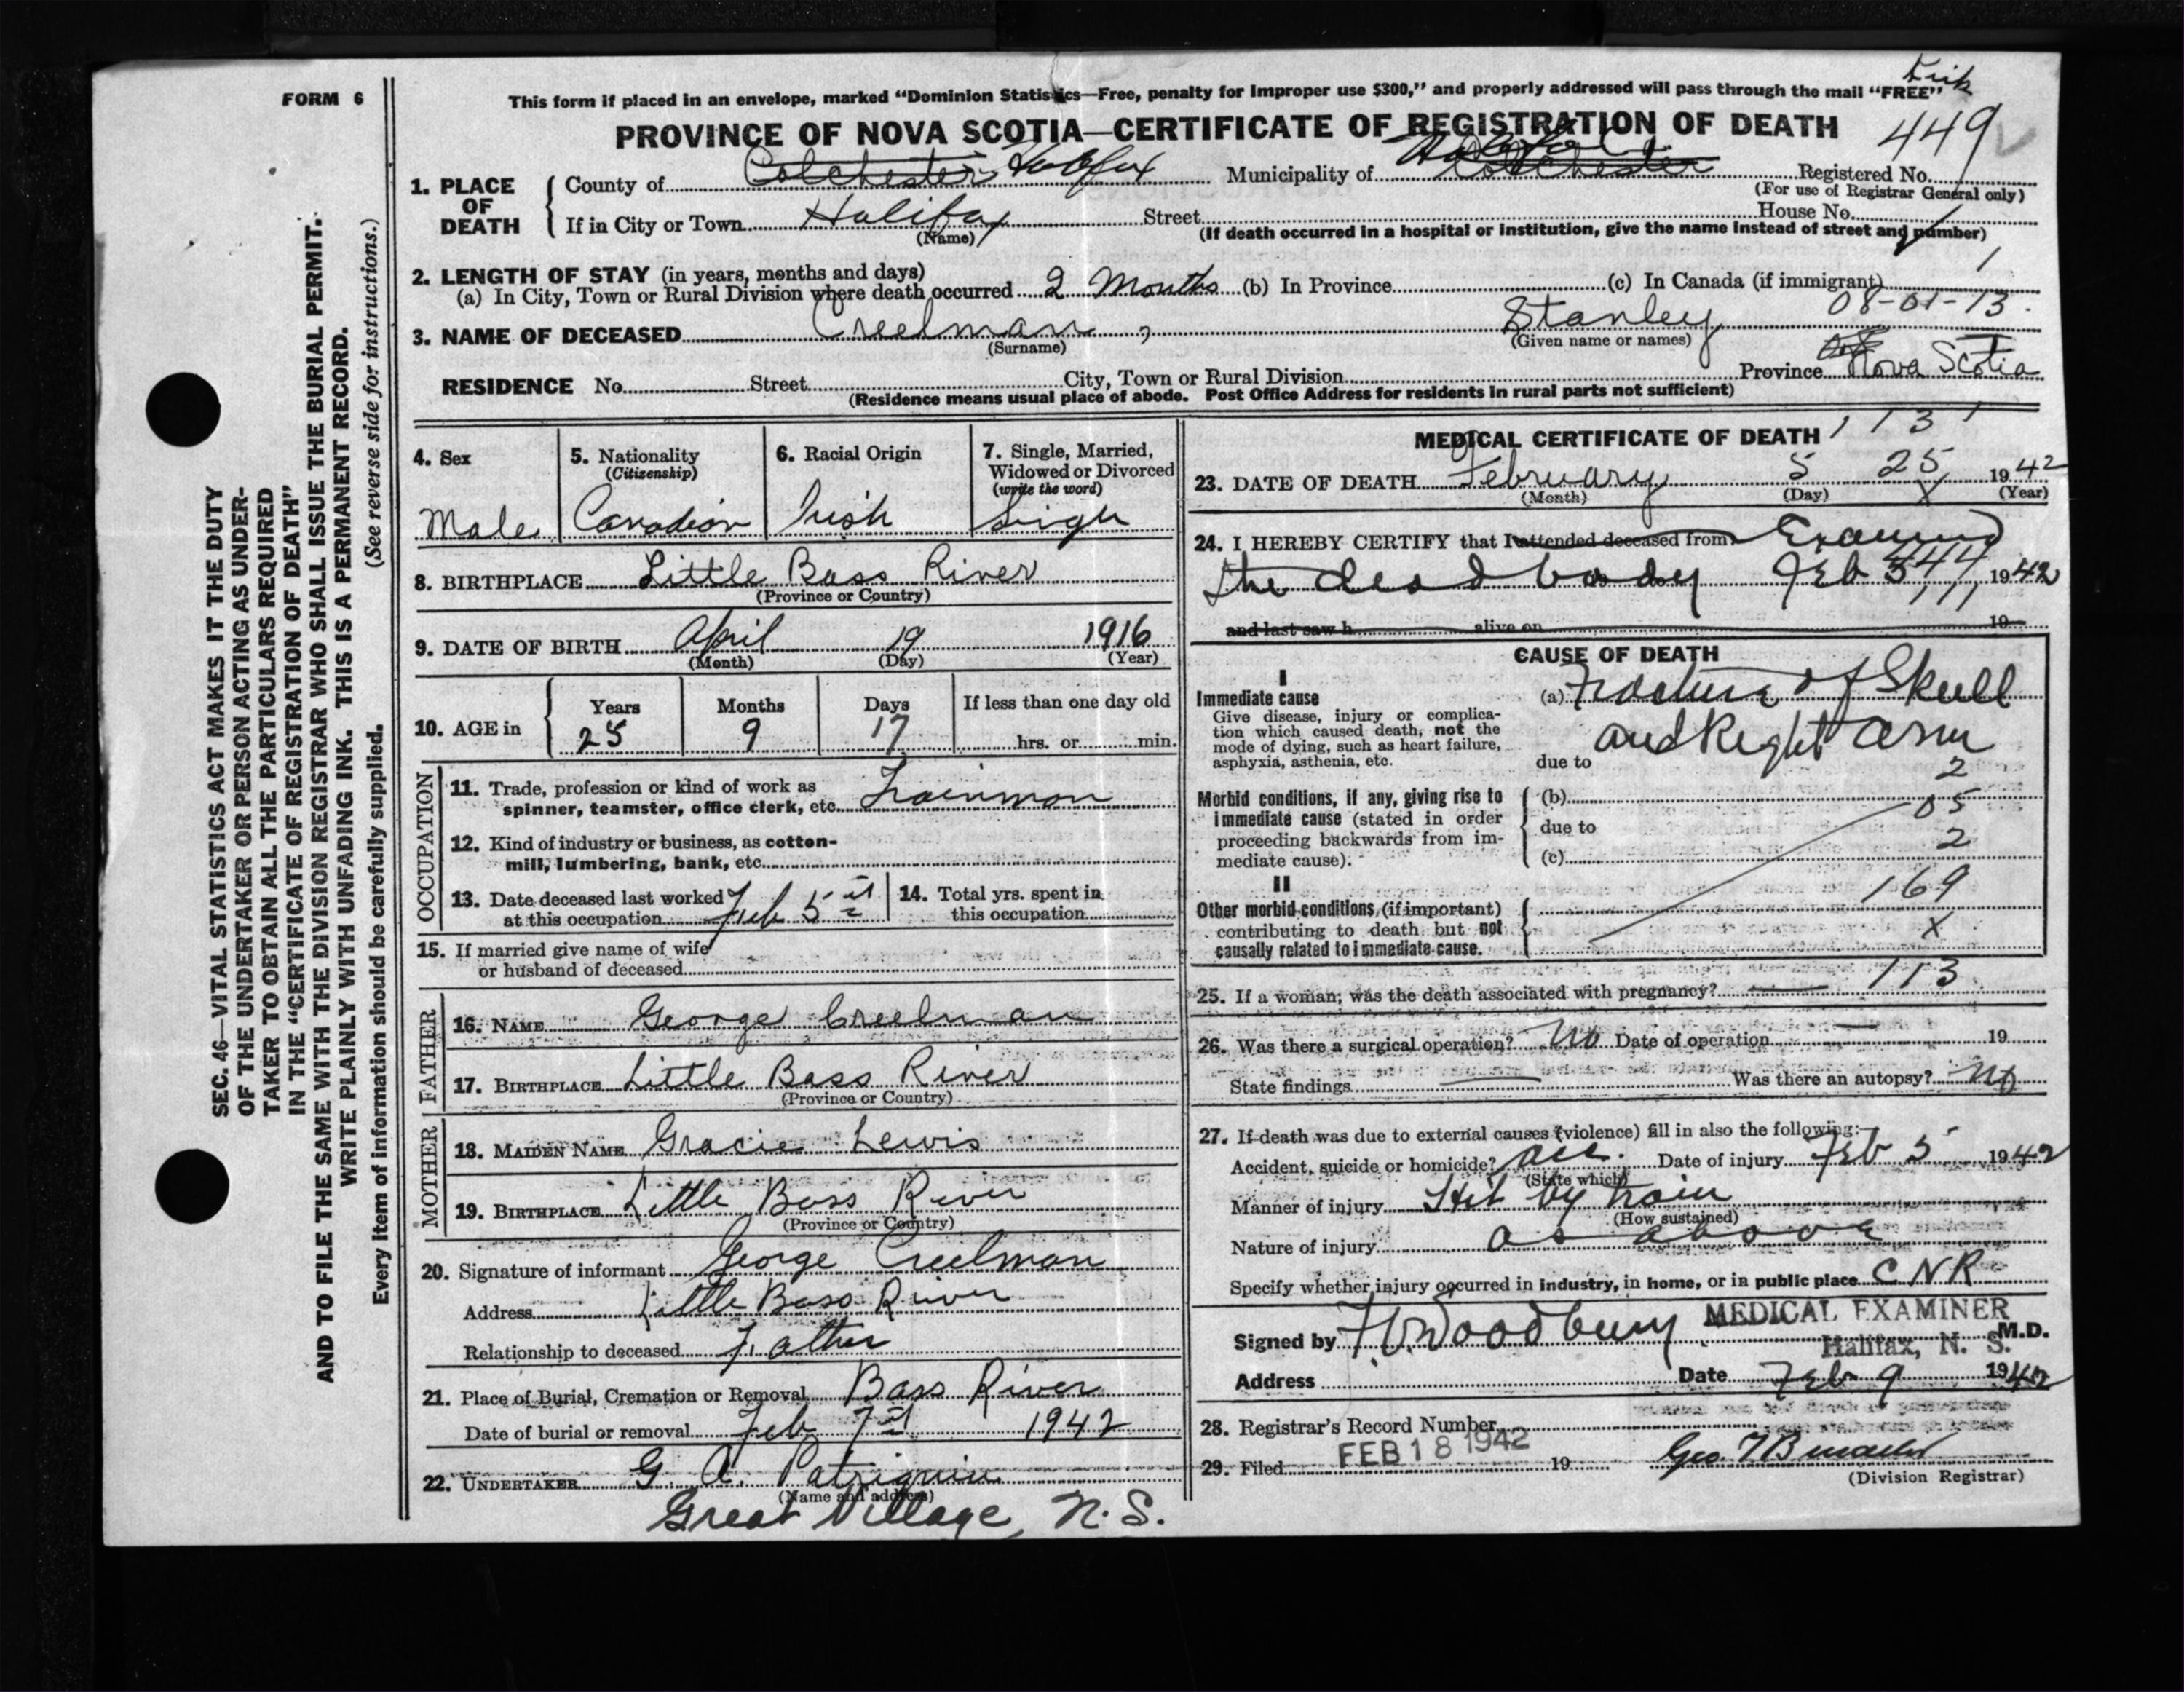 FORM 6
This form if placed in an envelope, marked “Dominion Statistics—Free, penalty for Improper use $300,” and properly addressed will pass through the mail “FREE”
PROVINCE OF NOVA SCOTIA—CERTIFICATE OF REGISTRATION OF DEATH 449
1. PLACE OF DEATH
County of Colchester Halifax Municipality of Colchester Registered No.
(For use of Registrar General only)
If in City or Town Halifax Street House No.
(Name)
(If death occurred in a hospital or institution, give the name instead of street and number)
2. LENGTH OF STAY (in years, months and days)
(a) In City, Town or Rural Division where death occurred 2 Months (b) In Province (c) In Canada (if immigrant)
08-01-13
3. NAME OF DECEASED Creelman, Stanley
(Surname) (Given name or names)
RESIDENCE No. Street City, Town or Rural Division Province Nova Scotia
(Residence means usual place of abode. Post Office Address for residents in rural parts not sufficient)
4. Sex
Male
5. Nationality
(Citizenship)
Canadian
6. Racial Origin
Irish
7. Single, Married,
Widowed or Divorced
(write the word)
8. BIRTHPLACE Little Bass River
(Province or Country)
9. DATE OF BIRTH April 19 1916
(Month) (Day) (Year)
10. AGE in
Years Months Days If less than one day old
25 9 17 hrs. or min.
OCCUPATION
11. Trade, profession or kind of work as
spinner, teamster, office clerk, etc. Trainman
12. Kind of industry or business, as cotton-
mill, lumbering, bank, etc.
13. Date deceased last worked
at this occupation Feb 5
14. Total yrs. spent in
this occupation
15. If married give name of wife
or husband of deceased
FATHER
16. NAME George Creelman
17. BIRTHPLACE Little Bass River
(Province or Country)
MOTHER
18. MAIDEN NAME Gracie Lewis
19. BIRTHPLACE Little Bass River
(Province or Country)
20. Signature of informant George Creelman
Address Little Bass River
Relationship to deceased Father
21. Place of Burial, Cremation or Removal Bass River
Date of burial or removal Feb 7 1942
22. UNDERTAKER G. A. Patriquin
(Name and address)
Great Village, N. S.
MEDICAL CERTIFICATE OF DEATH 1 1 3 1
23. DATE OF DEATH February 5 25 1942
(Month) (Day) (Year)
X
24. I HEREBY CERTIFY that I attended deceased from Examined
the dead body Feb 5 1942
444
111
and last saw h alive on 19
CAUSE OF DEATH
I
Immediate cause
Give disease, injury or complica-
tion which caused death, not the
mode of dying, such as heart failure,
asphyxia, asthenia, etc.
(a) Fracture of Skull
and Right arm
due to
2
Morbid conditions, if any, giving rise to
immediate cause (stated in order
proceeding backwards from im-
mediate cause).
(b)
05
due to
2
(c)
II
169
Other morbid conditions (if important)
contributing to death but not
causally related to immediate cause.
X
113
25. If a woman, was the death associated with pregnancy?
26. Was there a surgical operation? No Date of operation 19
State findings Was there an autopsy? No
27. If death was due to external causes (violence) fill in also the following:—
Accident, suicide or homicide? acc. Date of injury Feb 5 1942
(State which)
Manner of injury Hit by train
(How sustained)
Nature of injury as above
Specify whether injury occurred in industry, in home, or in public place CNR
Signed by F. V. Woodbury MEDICAL EXAMINER
Halifax, N. S. M.D.
Address Date Feb 9 1942
28. Registrar's Record Number
29. Filed FEB 18 1942 19
(Division Registrar)
SEC. 46—VITAL STATISTICS ACT MAKES IT THE DUTY
OF THE UNDERTAKER OR PERSON ACTING AS UNDER-
TAKER TO OBTAIN ALL THE PARTICULARS REQUIRED
IN THE “CERTIFICATE OF REGISTRATION OF DEATH”
AND TO FILE THE SAME WITH THE DIVISION REGISTRAR WHO SHALL ISSUE THE BURIAL PERMIT.
WRITE PLAINLY WITH UNFADING INK. THIS IS A PERMANENT RECORD.
Every item of information should be carefully supplied. (See reverse side for instructions.)